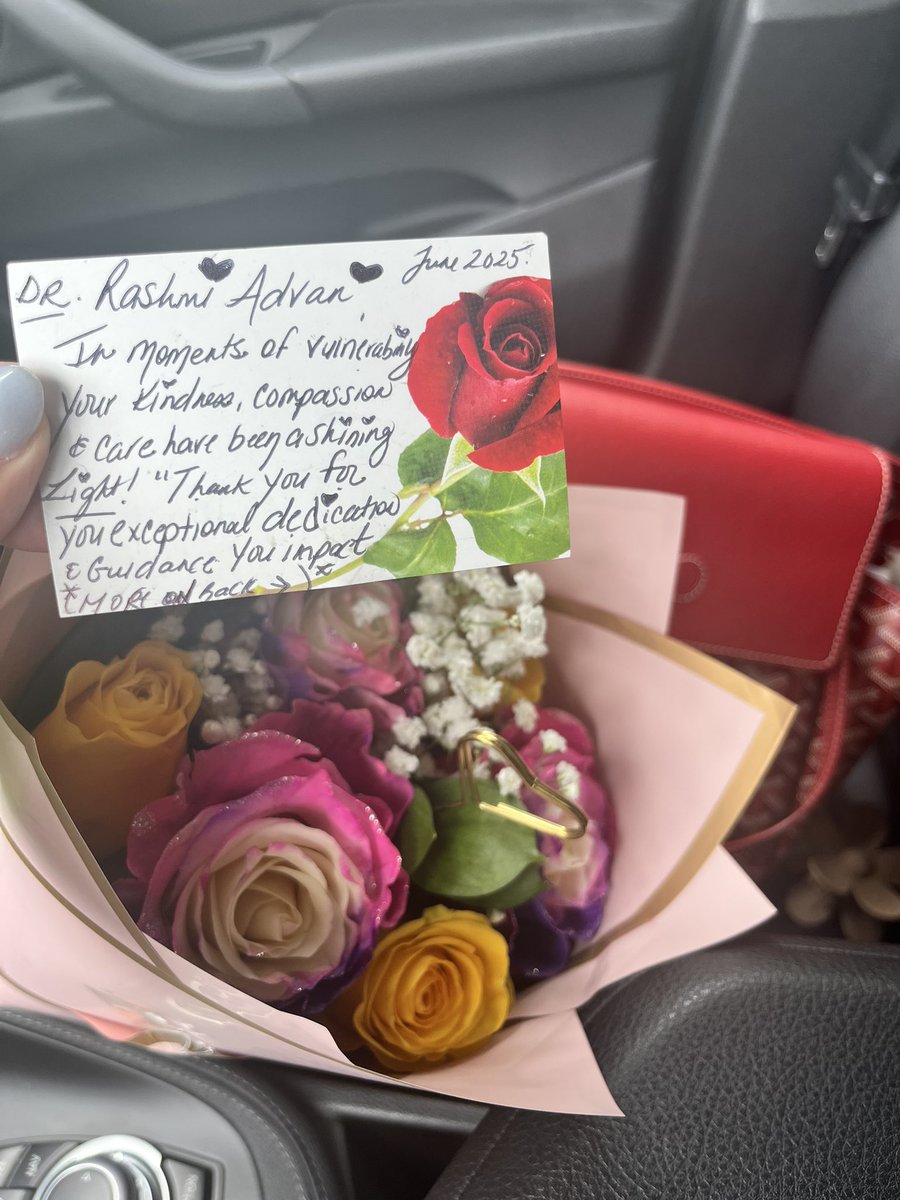 DR. Rashmi Advani June 2025.
In moments of vulnerability
your kindness, compassion
& care have been a shining
Light! "Thank you for
you exceptional dedication
& Guidance You impact
* (MORE on back →) *
NAV